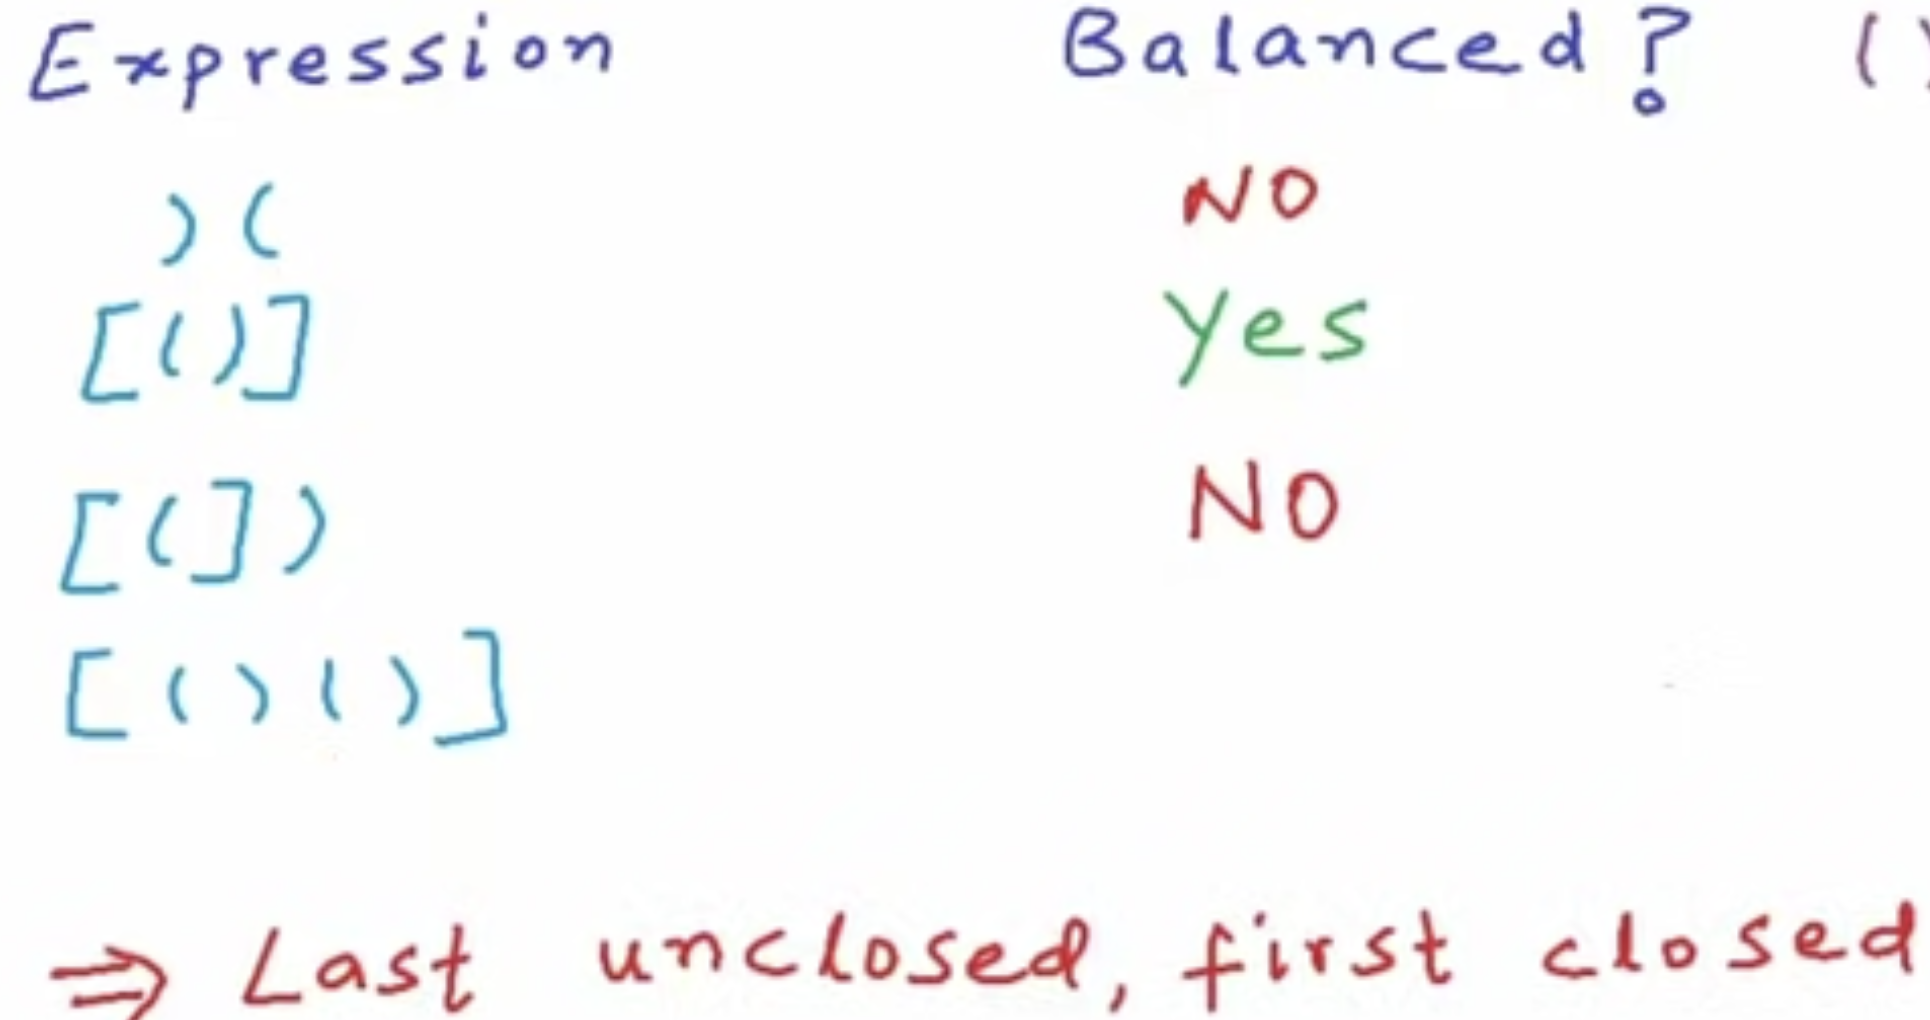 Expression Balanced? ()
)( NO
[()] Yes
[(]) NO
[()()]
⇒ Last unclosed, first closed